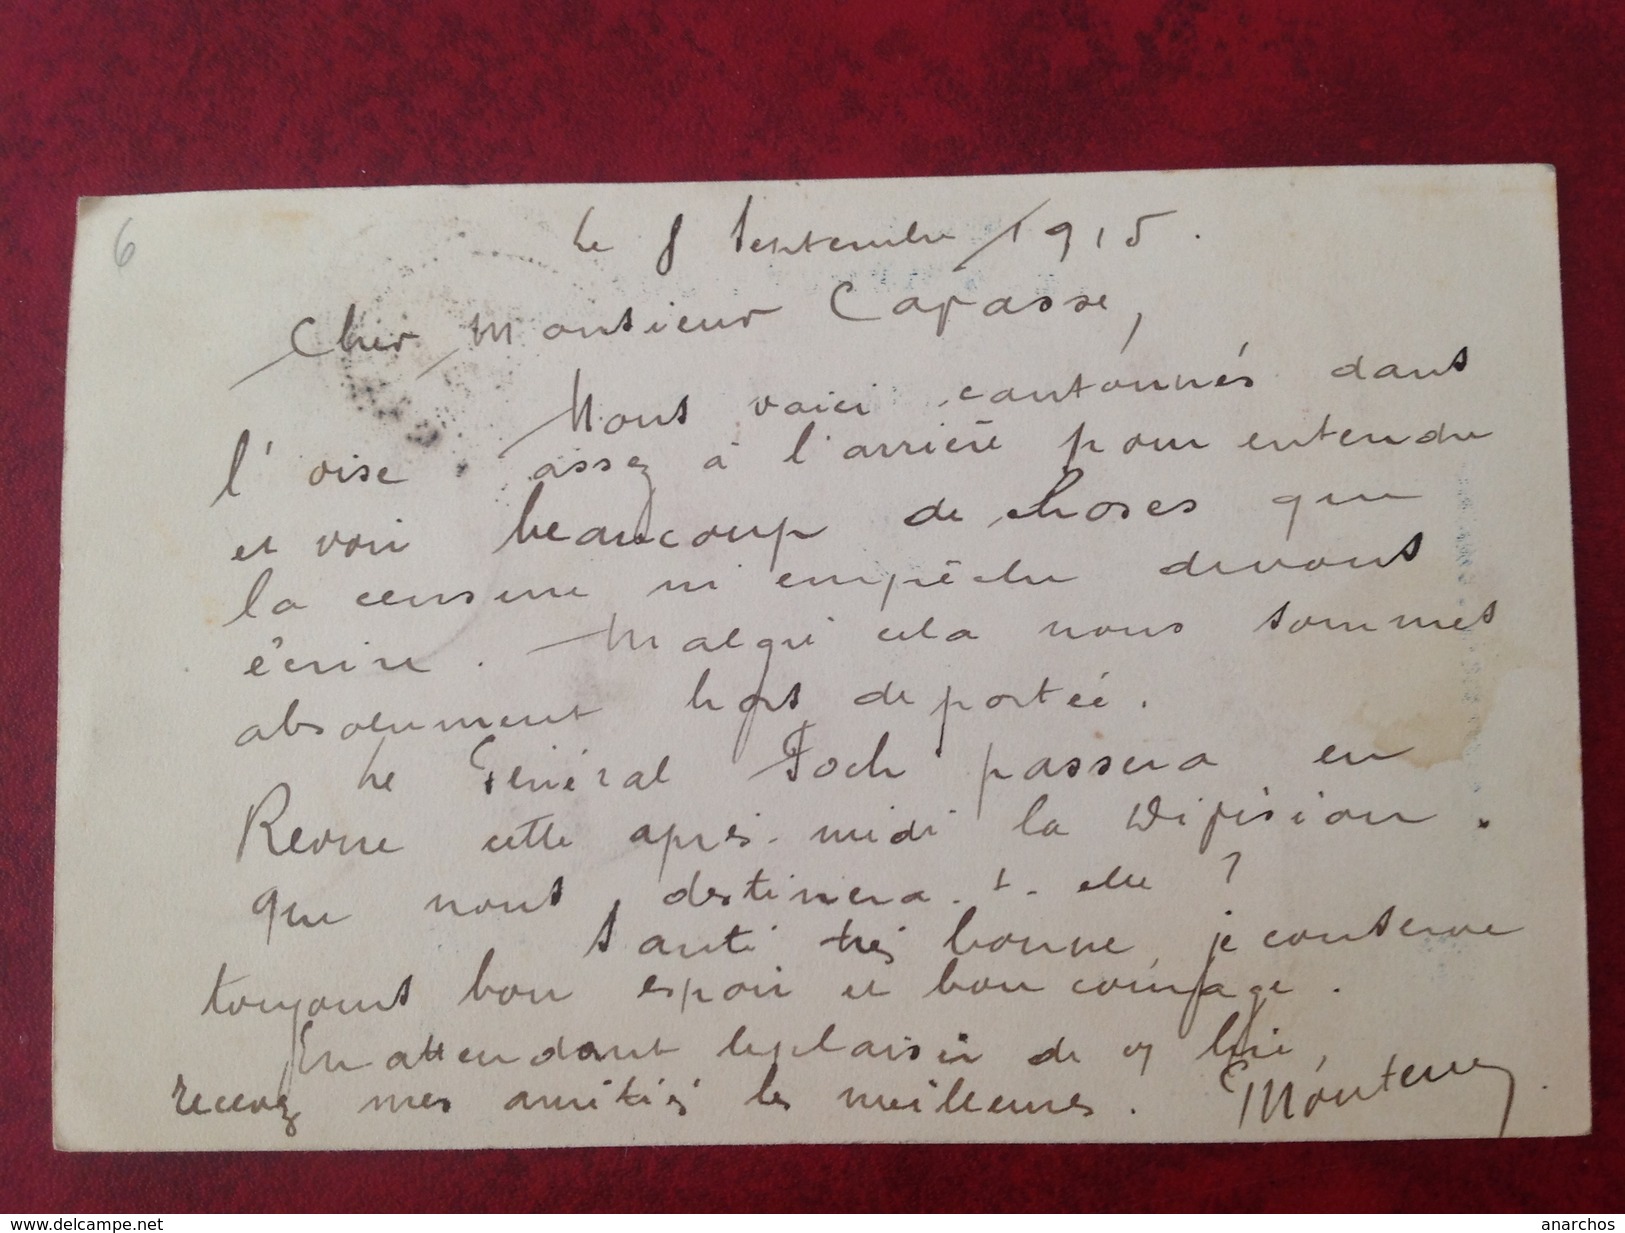 6
Le 8 Septembre 1915.
Cher Monsieur Capasse,
Nous voici cantonnés dans
l'oise assez à l'arrière pour entendre
et voir beaucoup de choses que
la censure m'empêche devous
écrire. Malgré cela nous sommes
absolument hors de portée.
Le Général Foch passera en
Revue cette après-midi la Division.
que nous destinera-t-elle ?
Santé très bonne, je conserve
toujours bon espoir et bon courage.
En attendant leplaisir de lire,
recevez mes amitiés les meilleures.
www.delcampe.net
anarchos